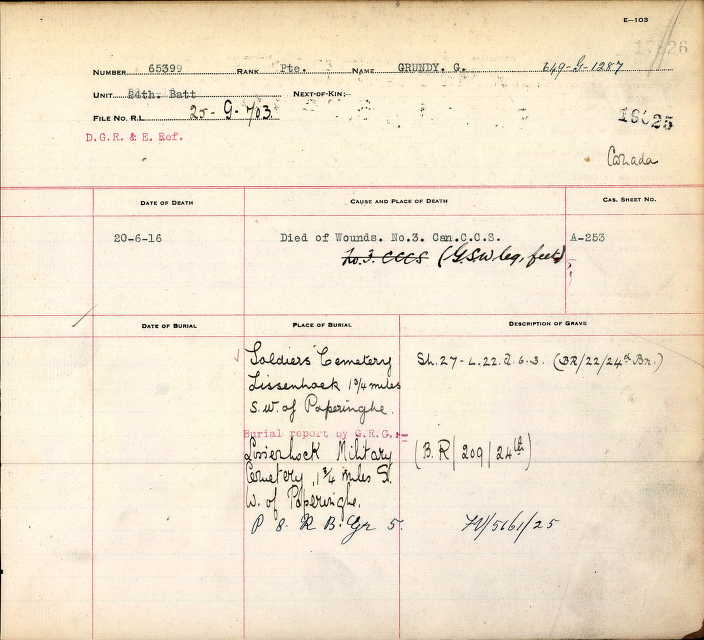 E—103
NUMBER 65399 RANK Pte. NAME GRUNDY. G. 649-G-1287
UNIT 24th. Batt NEXT-OF-KIN:—
FILE NO. R.L. 25-G-703.
D.G.R. & E. Ref.
Canada
DATE OF DEATH CAUSE AND PLACE OF DEATH CAS. SHEET NO.
20-6-16 Died of Wounds. No.3. Can.C.C.S. A-253
No. 3. CCCS (G.S.W. leg, feet)
DATE OF BURIAL PLACE OF BURIAL DESCRIPTION OF GRAVE
Soldiers Cemetery Sh. 27-L.22.d.6.3. (BR/22/24th Br.)
Lissenhoek 1 3/4 miles
S.W. of Poperinghe.
Burial report by G.R.G.:-
Lissenhock Military (B.R/209/24th)
Cemetery, 1 3/4 miles S.
W. of Poperinghe.
P 8. R B. Gr 5.